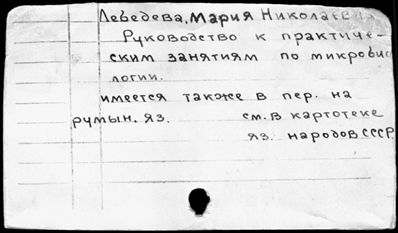 Лебедева, Мария Николаевна
Руководство к практиче-
ским занятиям по микробио
логии.
имеется также в пер. на
румын. яз. см. в картотеке
яз. народов СССР.